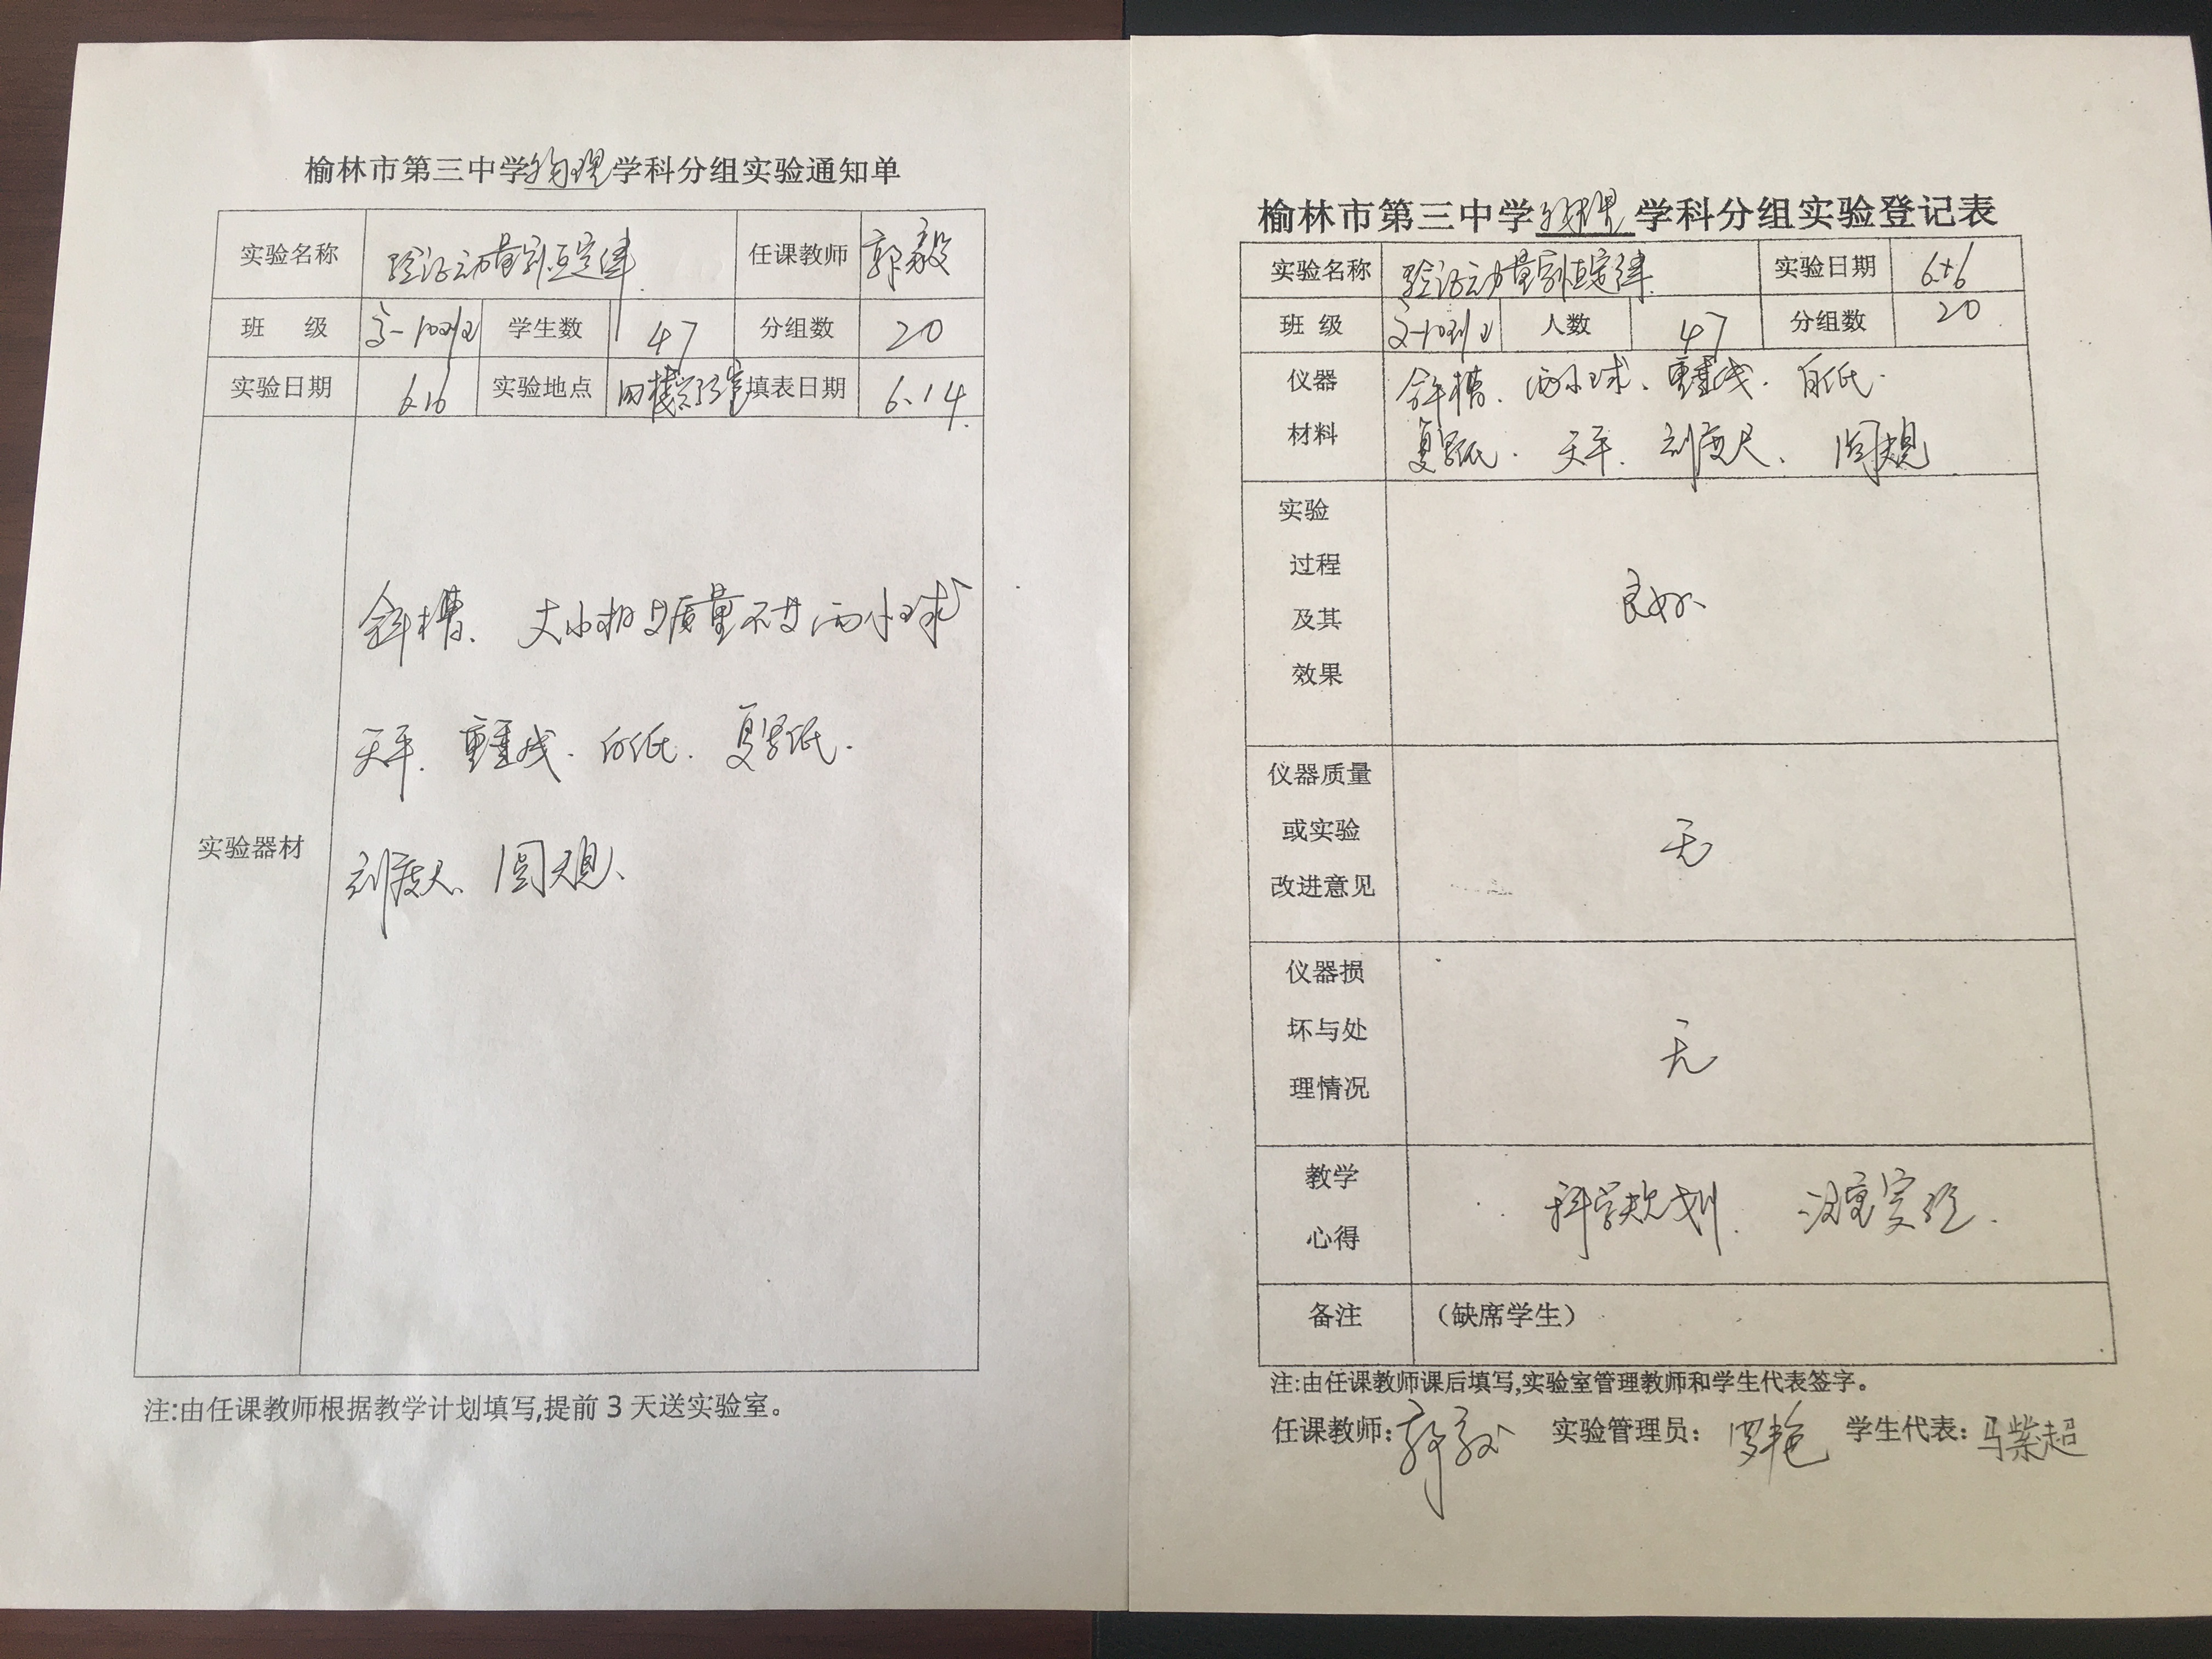 榆林市第三中学物理学科分组实验通知单
实验名称 验证动量守恒定律 任课教师 郭毅
班 级 高一10班 学生数 47 分组数 20
实验日期 6.16 实验地点 四楼实验室 填表日期 6.14.
实验器材
斜槽、大小相同质量不等两小球
天平、重垂线、白纸、复写纸.
刻度尺、圆规、
注:由任课教师根据教学计划填写,提前3天送实验室。
榆林市第三中学物理学科分组实验登记表
实验名称 验证动量守恒定律. 实验日期 6.16
班 级 高一10班 人数 47 分组数 20
仪器 斜槽、两小球、重垂线、白纸.
材料 复写纸. 天平、刻度尺、圆规
实验
过程
及其
效果
良好
仪器质量
或实验
改进意见
无
仪器损
坏与处
理情况
无
教学
心得
科学规划. 注重实验.
备注 （缺席学生）
注:由任课教师课后填写,实验室管理教师和学生代表签字。
任课教师: 郭毅 实验管理员: 罗艳 学生代表: 马柴超